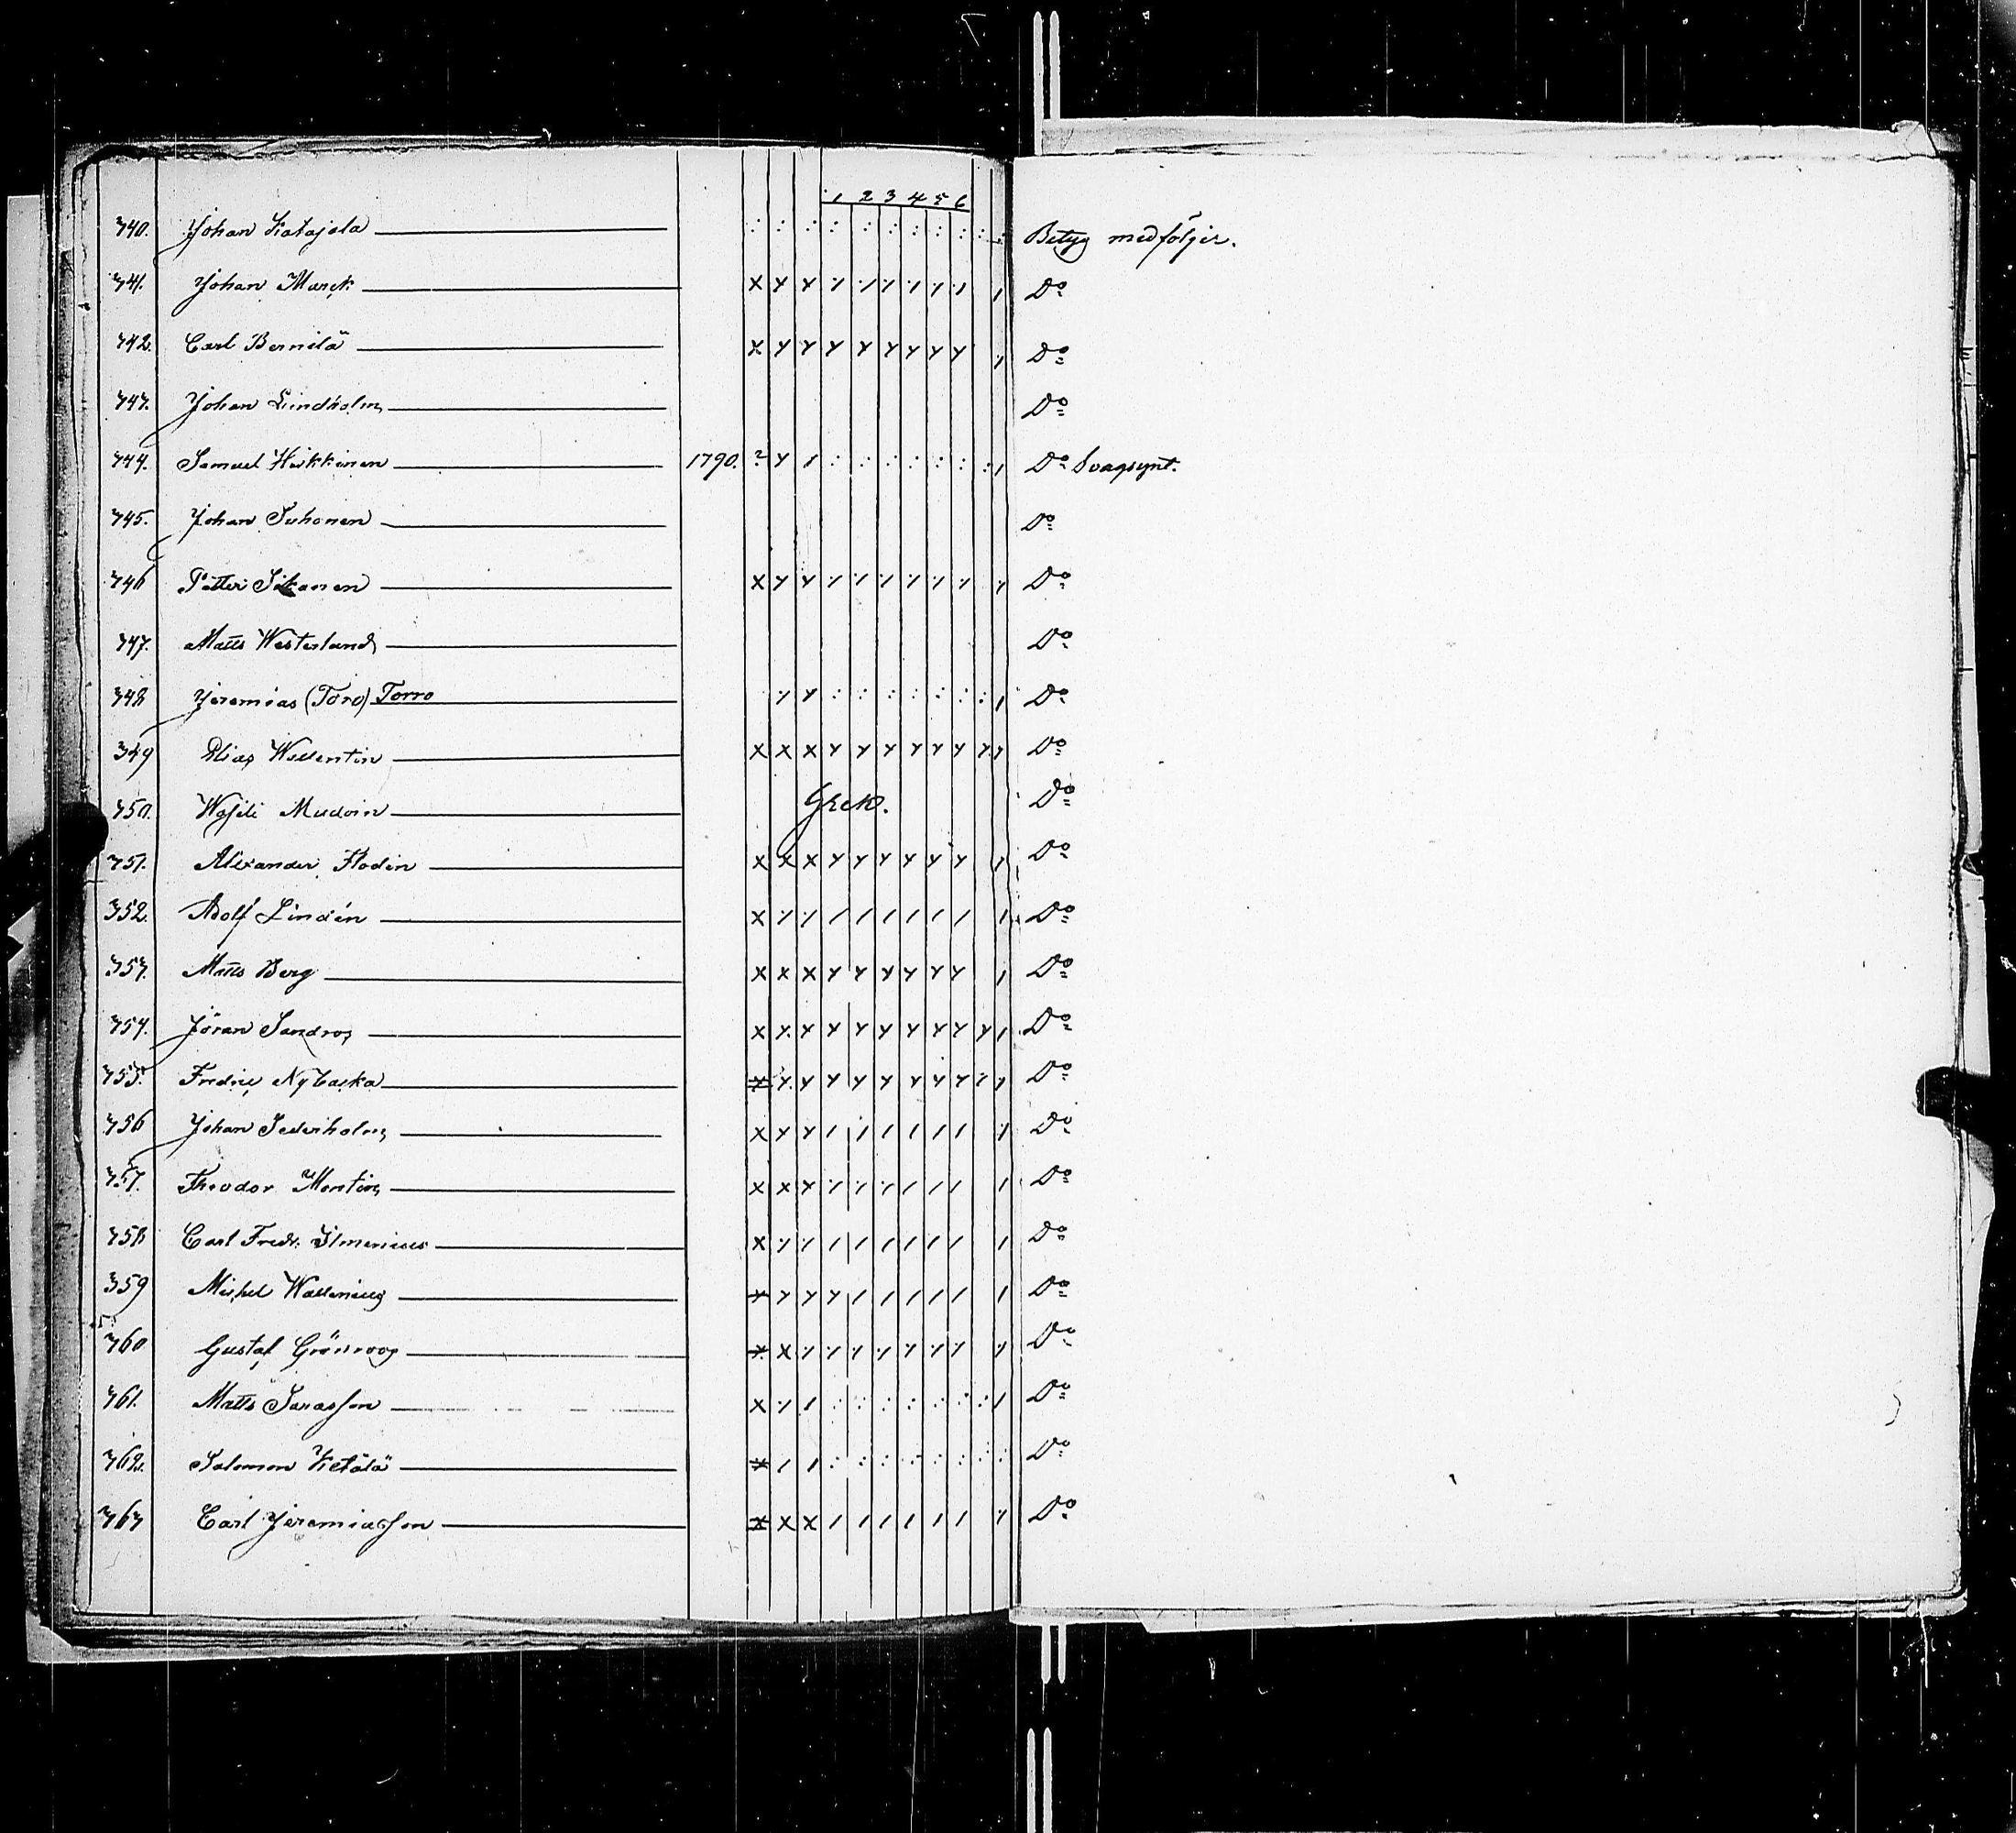 1 2 3 4 5 6
340. Johan Katajala : : : : : : : : : : : Betyg medföljer.
341. Johan Marck Do
342. Carl Bernilä Do
343. Johan Lindholm Do
344. Samuel Heikkinen 1790. ? Do Svagsynt.
345. Johan Suhonen Do
346 Petter Sikanen Do
347. Matts Westerlund Do
348 Jeremias (Toro) Torro Do
349 Elias Wallentin Do
350. Wasili Mudoin Grek. Do
351. Alexander Flodin Do
352. Adolf Lindén Do
353. Matts Berg Do
354. Jöran Sandros Do
355. Fredric Nybacka Do
356 Johan Sederholm Do
357. Theodor Montin Do
358 Carl Fredr. Ilmenius Do
359 Michel Wallenius Do
360 Gustaf Grönroos Do
361. Matts Isaasson Do
362. Salomon Kietälä Do
363 Carl Jeremiasson Do